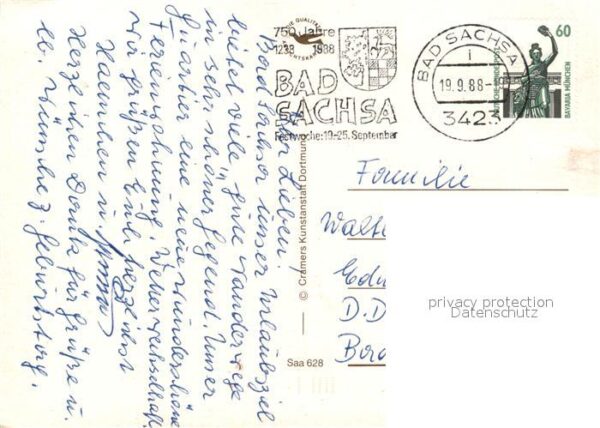 750 Jahre
1238 1988
BAD
SACHSA
Festwoche: 19.-25. September
BAD SACHSA
1
19.9.88
3423
60
DEUTSCHE BUNDESPOST
BAVARIA MÜNCHEN
Ihr Lieben!
Bad Sachsa unser Urlaubsziel
bietet viele gute Wanderwege
in sehr schöner Gegend. Unser
Quartier eine neue wunderschöne
Ferienwohnung. Wetter wechselhaft.
Wir grüßen Euch herzlichst
u.
Herzlichen Dank für Grüße u.
lb. Wünsche z. Geburtstag.
© Cramers Kunstanstalt Dortmund
Saa 628
Familie
Walte
D.D
privacy protection
Datenschutz